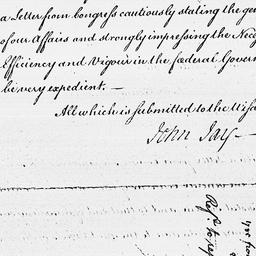 a Letter from Congress cautiously stating the gen
of our Affairs and strongly impressing the Nec
Efficiency and Vigour in the federal Govern
be very expedient. —
All which is submitted to the Wisd
John Jay —